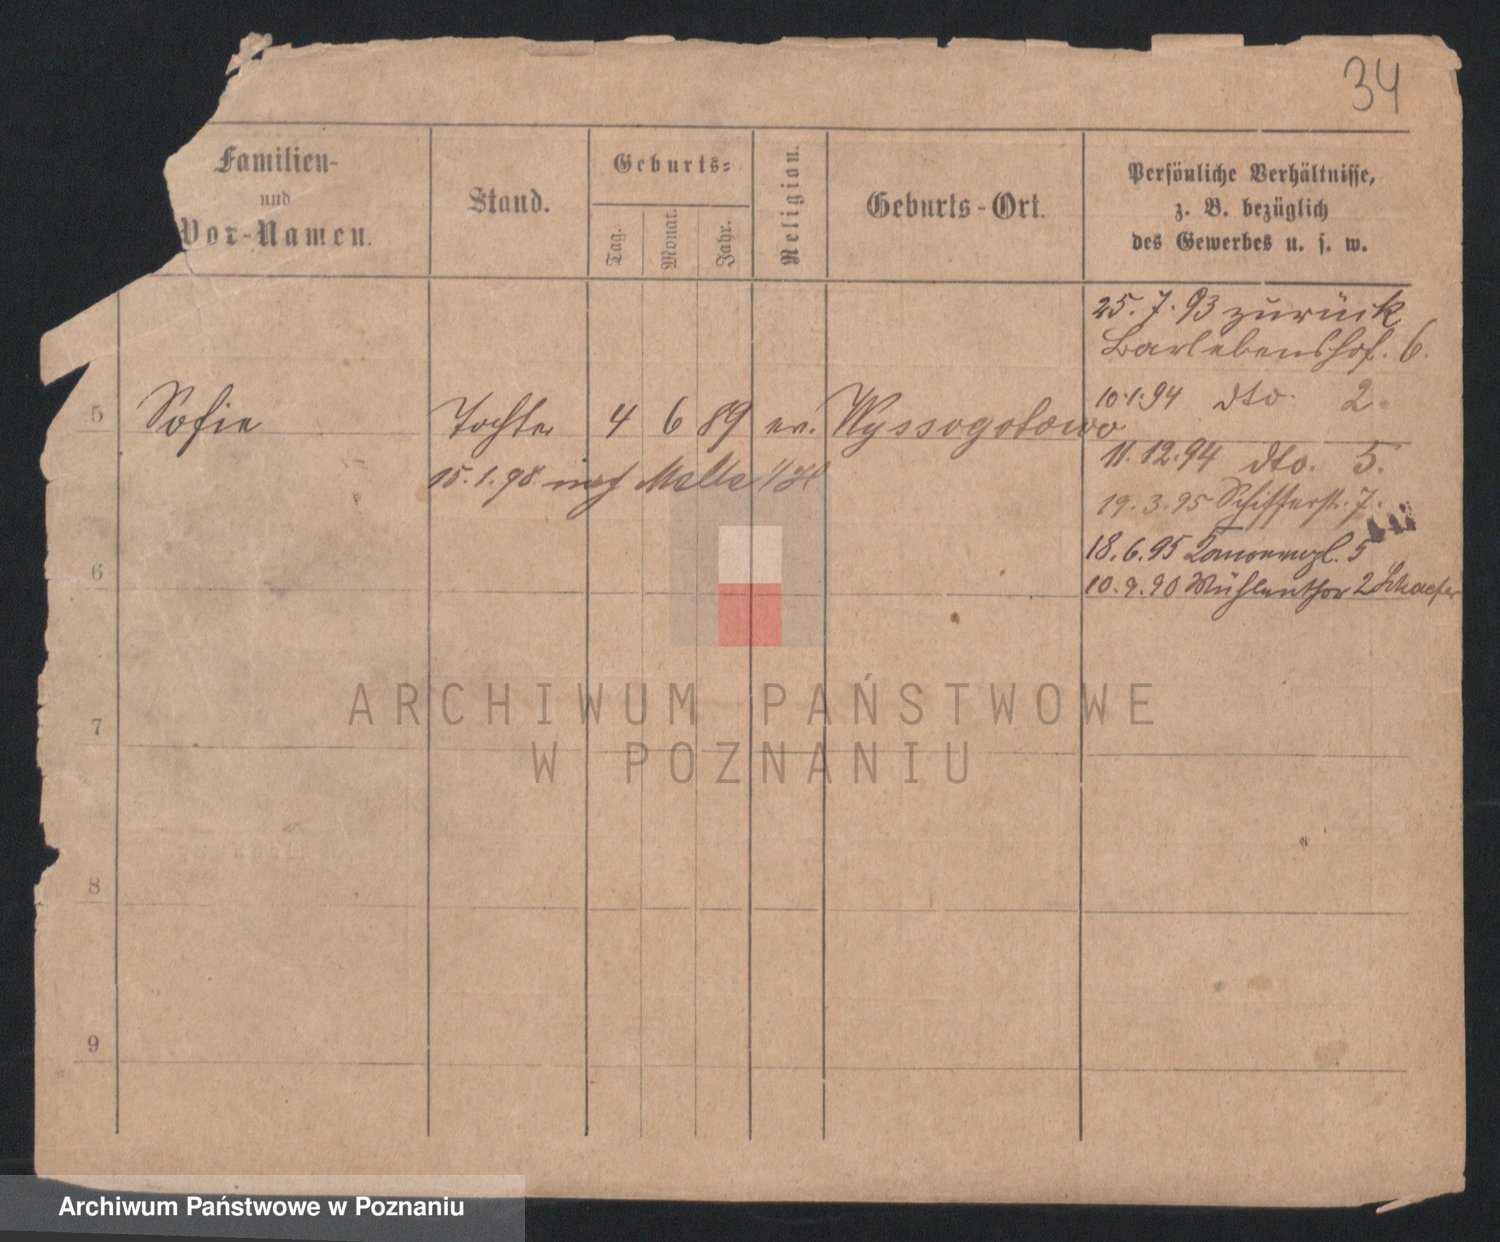 34
Familien-
und
Vor-Namen.
Stand.
Geburts-
Tag.
Monat.
Jahr.
Religion.
Geburts-Ort.
Persönliche Verhältnisse,
z. B. bezüglich
des Gewerbes u. s. w.
25. 7. 93 zurück
Barlebenshof. 6.
10.1.94 dto. 2.
5 Sofie Tochter 4 6 89 ev. Wyssogotowo
11. 12. 94 dto. 5.
15. 1. 98. nach
19. 3. 95 Schifferstr. 7.
18. 6. 95 5
6
Mühlenthor 2 Schaefer
7
8
9
ARCHIWUM PAŃSTWOWE
W POZNANIU
Archiwum Państwowe w Poznaniu